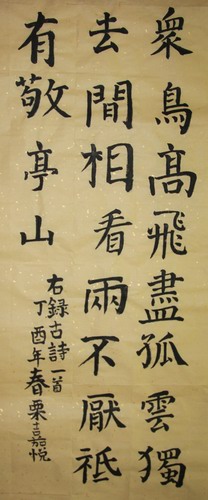 衆鳥髙飛盡孤雲獨
去閒相看兩不厭祗
有敬亭山
右錄古詩一首
丁酉年春栗嘉悅